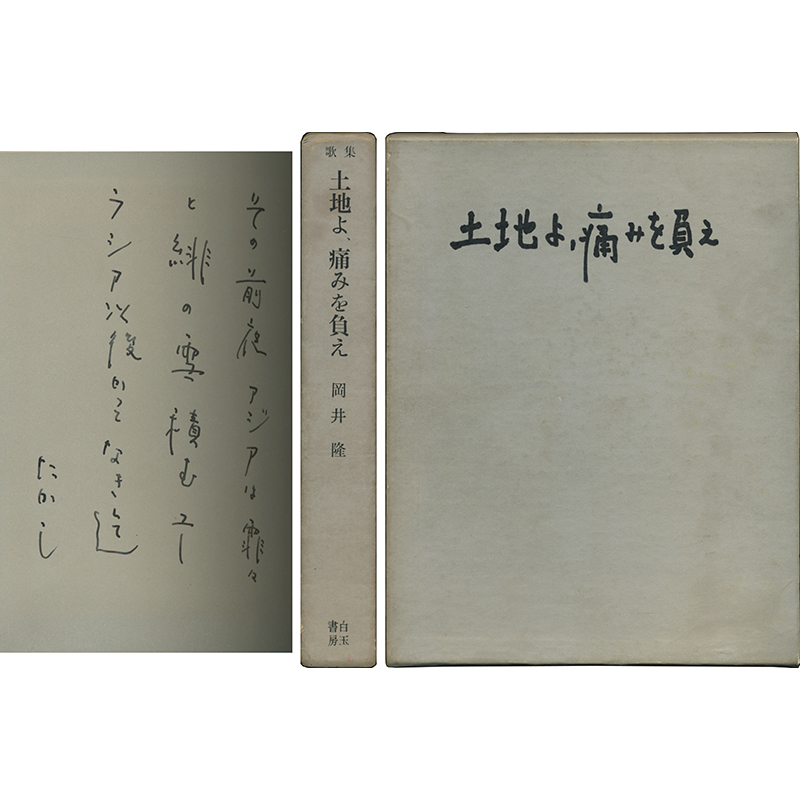 その前夜アジアは霏々
と緋の雪積むユー
ラシア以後かつてなき迄
たかし
歌集
土地よ、痛みを負え
岡井 隆
白玉
書房
土地よ,痛みを負え